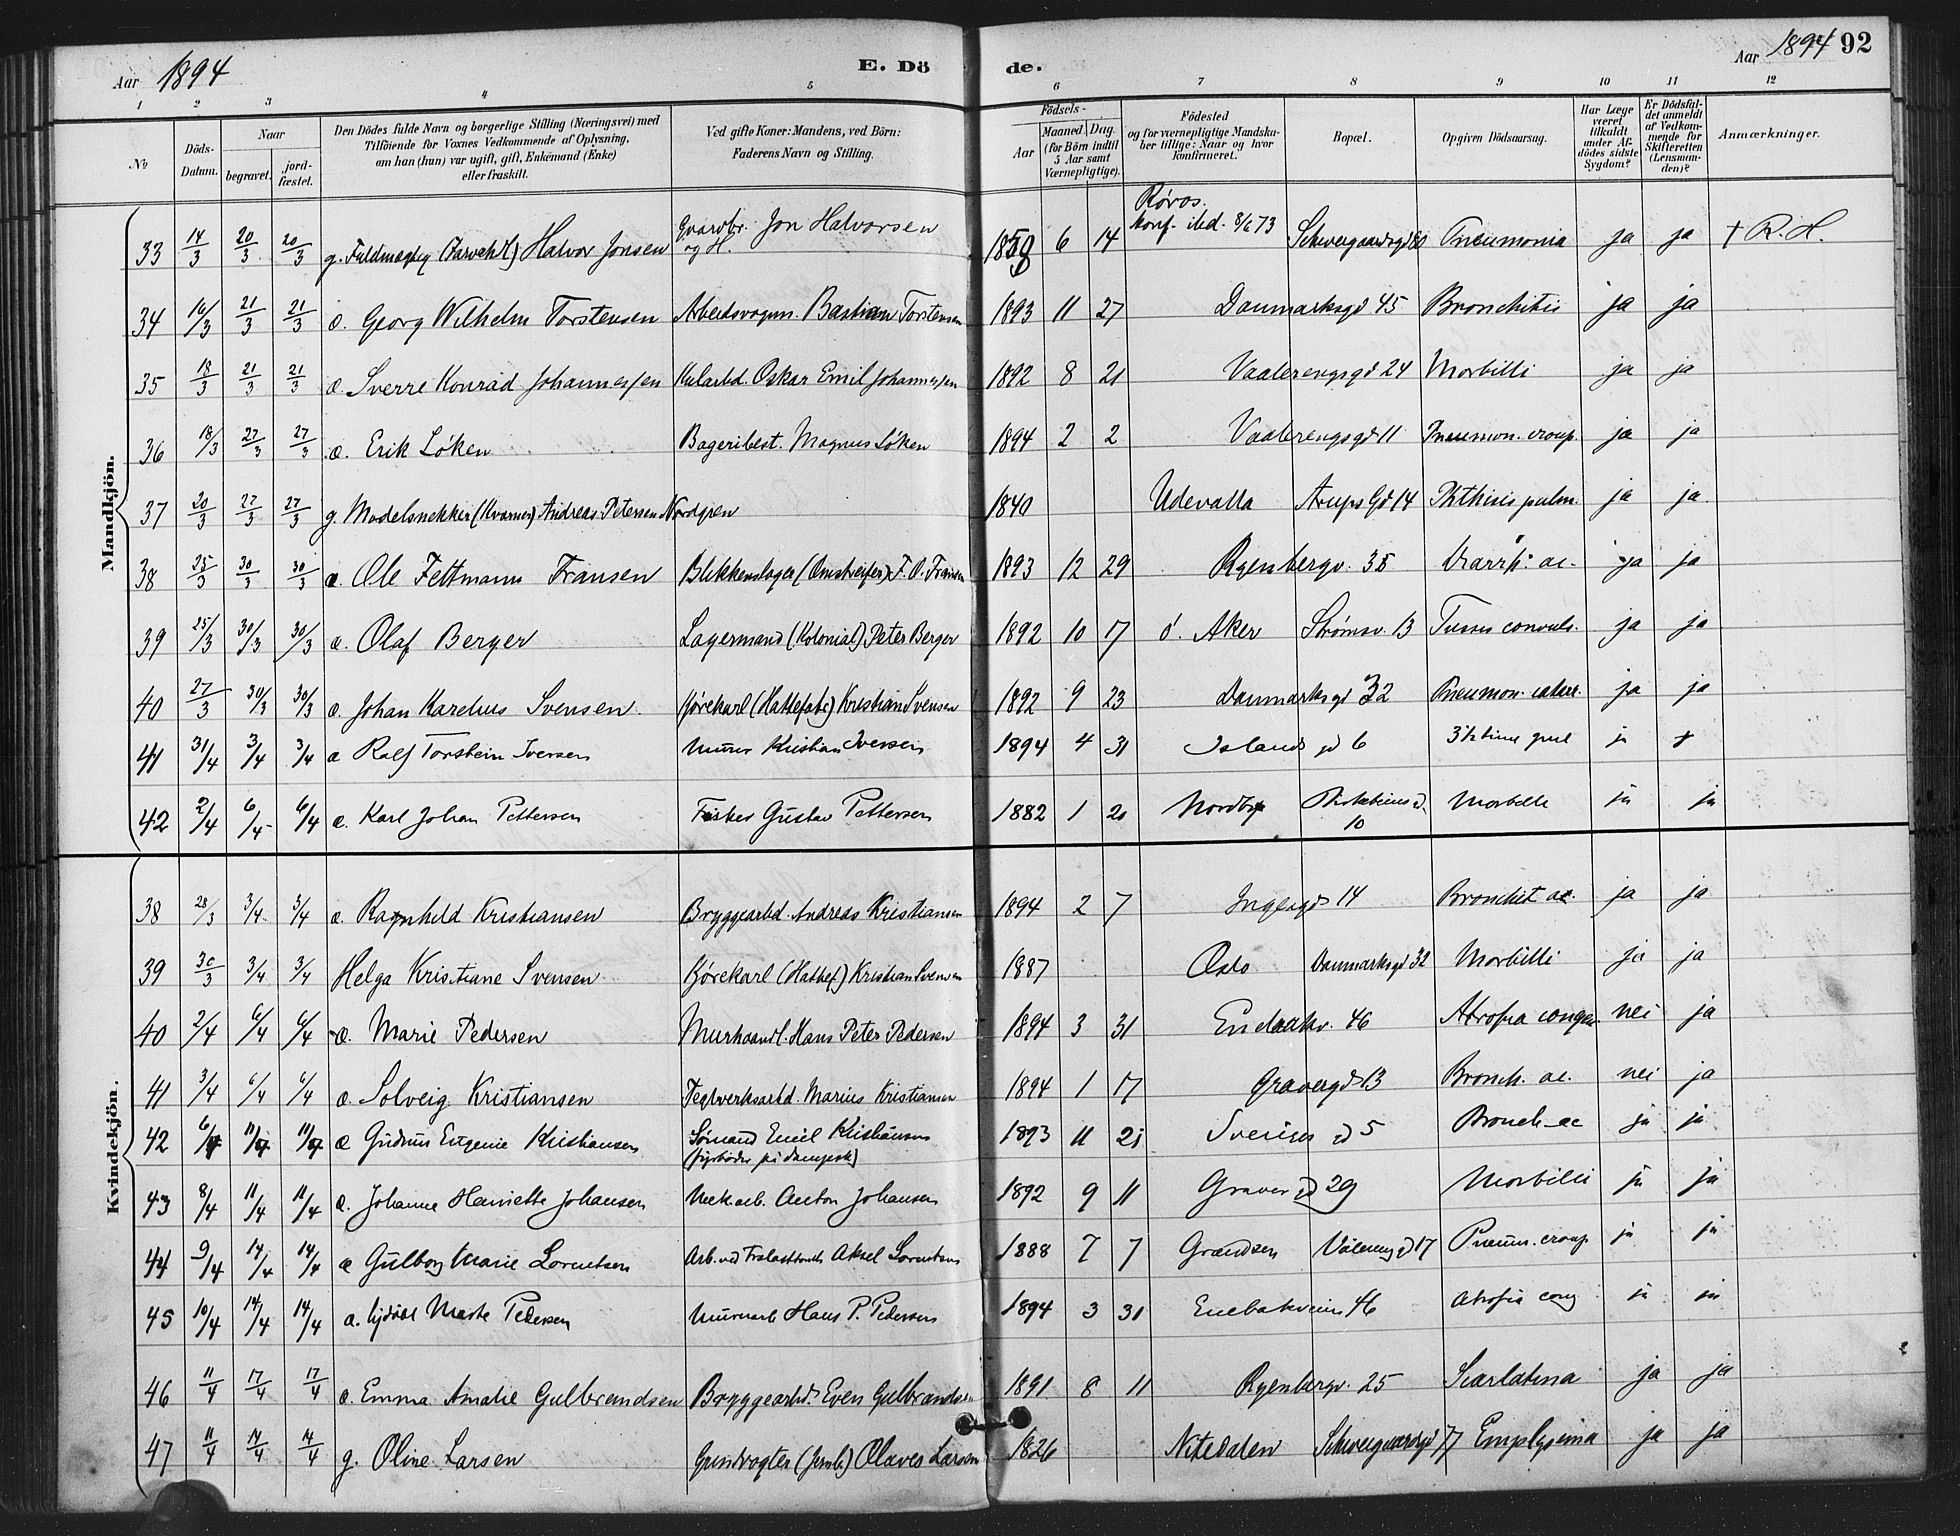 Aar 1894 E. Dö de. Aar 1894 92
1 2 3 4 5 6 7 8 9 10 11 12
№ Döds-Datum. Naar begravet. jord-fæstet. Den Dödes fulde Navn og borgerlige Stilling (Næringsvei) med Tilföiende for Voxnes Vedkommende af Oplysning, om han (hun) var ugift, gift, Enkemand (Enke) eller fraskilt. Ved gifte Koner: Mandens, ved Börn: Faderens Navn og Stilling. Födsels- Aar Maaned. Dag. (for Börn indtil 5 Aar samt Værnepligtige). Födested og for værnepligtige Mandskaber tillige: Naar og hvor konfirmeret. Bopæl. Opgiven Dödsaarsag. Har Læge været tilkaldt under Afdödes sidste Sygdom? Er Dödsfaldet anmeldt af Vedkommende for Skifteretten (Lensmanden)? Anmærkninger.
Mandkjön.
33 14/3 20/3 20/3 g. Fuldmægtig Halvor Jonsen Gvardbr. Jon Halvorsen og H. 1859 6 14 Røros. konf. ibd. 8/6 73 Schweigaardsgd Pneumonia ja ja † R. H.
34 16/3 21/3 21/3 æ. Georg Wilhelm Torstensen Arbeidsvogn. Bastian Torstensen 1893 11 27 Danmarksgd 45 Bronchitis ja ja
35 18/3 21/3 21/3 æ. Sverre Konrad Johannessen Kularbd. Oskar Emil Johannessen 1892 8 21 Vaalerengsgd 24 Morbilli ja ja
36 18/3 27/3 27/3 æ. Erik Løken Bageribest. Magnus Løken 1894 2 2 Vaalerengsgd 11 Pneumon. croup. ja ja
37 20/3 27/3 27/3 g. Modelsnekker (Kværner) Andreas Petersen Nordgren 1840 Udevalla Arups Gd 14 Phthisis pulm. ja ja.
38 25/3 30/3 30/3 æ. Ole Fettmann Fransen Blikkenslager (Omstreifer) F. O. Fransen 1893 12 29 Ryenbergv. 35 Diarrh. ac. ja ja
39 25/3 30/3 30/3 æ. Olaf Berger Lagermand (Kolonial) Peter Berger 1892 10 17 ö. Aker Strømsv 13 Tussis convuls. ja ja
40 27/3 30/3 30/3 æ. Johan Karelius Svensen. Kjørekarl (Hattefabr) Kristian Svensen 1892 9 23 Danmarksgd 32 Pneumon. catarr. ja ja
41 31/4 3/4 3/4 æ Ralf Torstein Iversen Murer Kristian Iversen 1894 4 31 Islands gd 6 3½ time gml ja
42 2/4 6/4 6/4 æ. Karl Johan Pettersen Fisker Gustav Pettersen 1882 1 20 Nordby 10 Morbilli ja ja
Kvindekjön.
38 28/3 3/4 3/4 æ. Ragnhild Kristiansen Bryggearbd. Andreas Kristiansen 1894 2 7 Ingesgd 14 Bronchit ac. ja ja
39 30/3 3/4 3/4 Helga Kristiane Svensen Kjørekarl (Hattef) Kristian Svensen 1887 Oslo Danmarksgd 32 Morbilli ja ja
40 2/4 6/4 6/4 æ. Marie Pedersen Murhaandl. Hans Peter Pedersen 1894 3 31 Enebakv. 46 Atrofia congen. nei ja
41 3/4 6/4 6/4 æ. Solveig Kristiansen Teglverksarbd. Marius Kristiansen 1894 1 17 Gravergd 13 Bronch. ac. nei ja
42 6/4 11/4 11/4 æ Gudrun Eugenie Kristiansen Sømand Emil Kristiansen (fyrbøder på dampsk) 1893 11 21 Sveriges gd 5 Bronch ac ja ja
43 8/4 11/4 11/4 æ. Johanne Henriette Johansen Anton Johansen 1892 9 11 Graver gd 29 Morbilli ja ja
44 9/4 14/4 14/4 æ Gulborg Marie Lorentsen Arb. ved Aksel Lorentsen 1888 7 7 Grændsen Vålereng gd 17 Pneum. croup ja ja
45 10/4 14/4 14/4 æ. Marte Pedersen Murarb Hans P. Pedersen 1894 3 31 Enebakveien 46 Atrofia cong ja ja
46 11/4 17/4 17/4 æ. Emma Amalie Gulbrandsen Bryggearbd. Even Gulbrandsen 1891 8 11 Ryenbergv. 25 Scarlatina ja ja
47 11/4 14/4 14/4 g. Oline Larsen Grindvogter (Jernb.) Olaves Larsen 1826 Nitedalen Schweigaardsgd 77 Emphysema ja ja